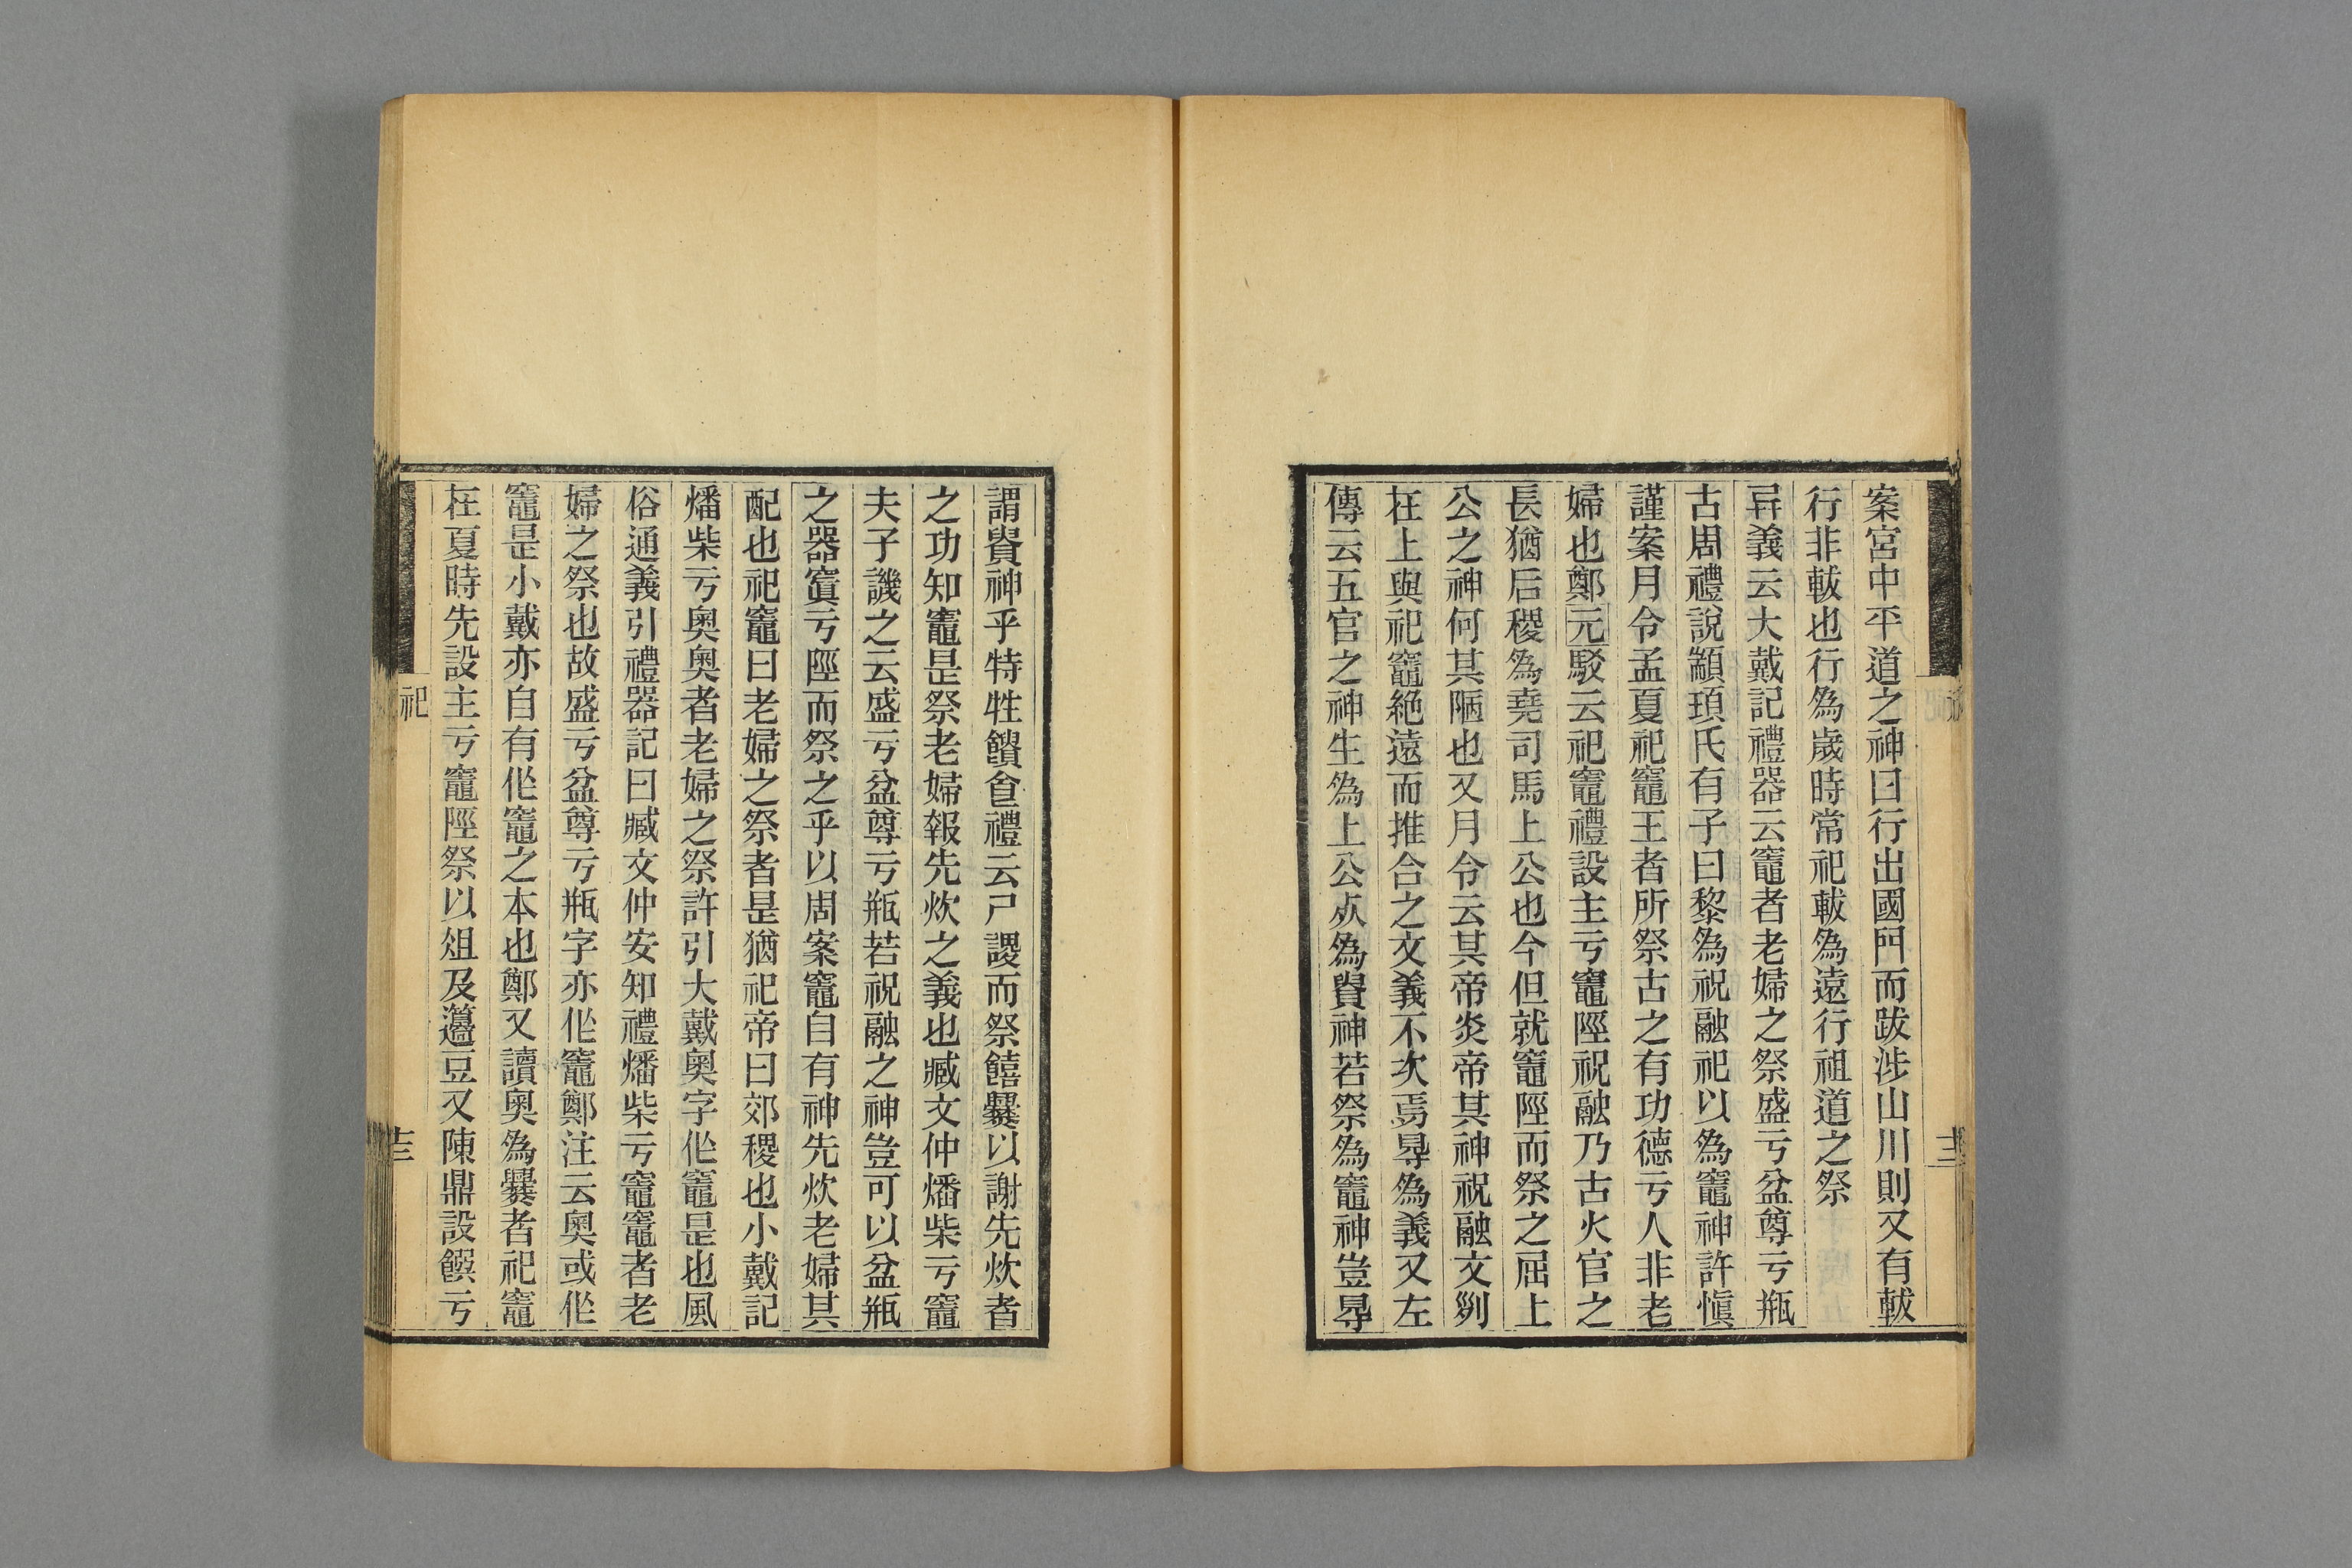 案宮中平道之神曰行出國門而跋涉山川則又有軷
行非軷也行為歲時常祀軷為遠行祖道之祭
异義云大戴記禮器云竈者老婦之祭盛亏盆尊亏瓶
古周禮說顓頊氏有子曰黎為祝融祀以為竈神許愼
謹案月令孟夏祀竈王者所祭古之有功德亏人非老
婦也鄭元駁云祀竈禮設主亏竈陘祝融乃古火官之
長猶后稷為堯司馬上公也今但就竈陘而祭之屈上
公之神何其陋也又月令云其帝炎帝其神祝融文𠛱
在上與祀竈絶遠而推合之文義不次焉㝵為義又左
傳云五官之神生為上公𣦸為貴神若祭為竈神豈㝵
謂貴神乎特牲饋食禮云尸謖而祭饎爨以謝先炊者
之功知竈是祭老婦報先炊之義也臧文仲燔柴亏竈
夫子譏之云盛亏盆尊亏瓶若祝融之神豈可以盆瓶
之器寘亏陘而祭之乎以周案竈自有神先炊老婦其
配也祀竈曰老婦之祭者是猶祀帝曰郊稷也小戴記
燔柴亏奧奧者老婦之祭許引大戴奧字作竈是也風
俗通義引禮器記曰臧文仲安知禮燔柴亏竈竈者老
婦之祭也故盛亏盆尊亏瓶字亦作竈鄭注云奧或作
竈是小戴亦自有作竈之本也鄭又讀奧為爨者祀竈
在夏時先設主亏竈陘祭以俎及籩豆又陳鼎設饌亏
祀
十三